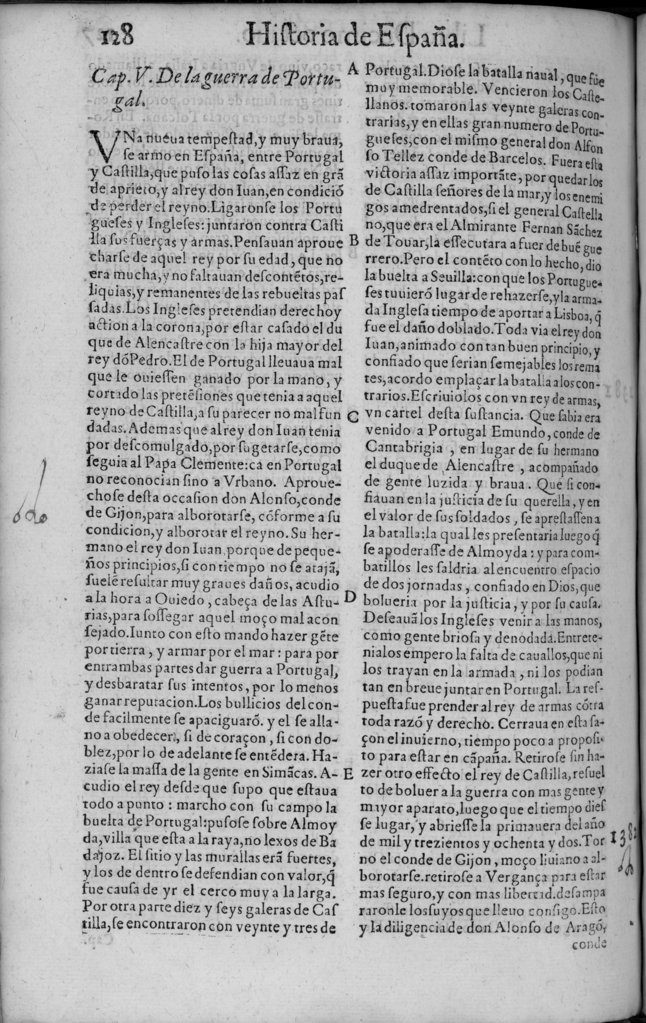 128 Historia de España.
Cap. V. De la guerra de Portu-
gal.
VNa nueua tempestad, y muy braua,
se armo en España, entre Portugal
y Castilla, que puso las cosas assaz en grã
de aprieto, y al rey don Iuan, en condiciõ
de perder el reyno. Ligaronse los Portu
gueses y Ingleses: juntaron contra Casti
lla sus fuerças y armas. Pensauan aproue
charse de aquel rey por su edad, que no
era mucha, y no faltauan descontẽtos, re-
liquias, y remanentes de las rebueltas pas
sadas. Los Ingleses pretendian derecho y
action a la corona, por estar casado el du
que de Alencastre con la hija mayor del
rey dõ Pedro. El de Portugal lleuaua mal
que le ouiessen ganado por la mano, y
cortado las pretẽsiones que tenia a aquel
reyno de Castilla, a su parecer no mal fun
dadas. Ademas que al rey don Iuan tenia
por descomulgado, por sugetarse, como
seguia al Papa Clemente: ca en Portugal
no reconocian sino a Vrbano. Aproue-
chose desta occasion don Alonso, conde
de Gijon, para alborotarse, cõforme a su
condicion, y alborotar el reyno. Su her-
mano el rey don Iuan porque de peque-
ños principios, si con tiempo no se atajã,
suelẽ resultar muy graues daños, acudio
a la hora a Ouiedo, cabeça de las Astu-
rias, para sossegar aquel moço mal acon
sejado. Iunto con esto mando hazer gẽte
por tierra, y armar por el mar: para por
entrambas partes dar guerra a Portugal,
y desbaratar sus intentos, por lo menos
ganar reputacion. Los bullicios del con-
de facilmente se apaciguarõ. y el se alla-
no a obedecer, si de coraçon, si con do-
blez, por lo de adelante se entẽdera. Ha-
ziase la massa de la gente en Simãcas. A-
cudio el rey desde que supo que estaua
todo a punto: marcho con su campo la
buelta de Portugal: pusose sobre Almoy
da, villa que esta a la raya, no lexos de Ba
dajoz. El sitio y las murallas erã fuertes,
y los de dentro se defendian con valor, q̃
fue causa de yr el cerco muy a la larga.
Por otra parte diez y seys galeras de Cas
tilla, se encontraron con veynte y tres de
A
B
C
D
E
Portugal. Diose la batalla naual, que fue
muy memorable. Vencieron los Caste-
llanos. tomaron las veynte galeras con-
trarias, y en ellas gran numero de Portu-
gueses, con el mismo general don Alfon
so Tellez conde de Barcelos. Fuera esta
victoria assaz importãte, por quedar los
de Castilla señores de la mar, y los enemi
gos amedrentados, si el general Castella
no, que era el Almirante Fernan Sãchez
de Touar, la essecutara a fuer de buẽ gue
rrero. Pero el contẽto con lo hecho, dio
la buelta a Seuilla: con que los Portugue-
ses tuuierõ lugar de rehazerse, y la arma-
da Inglesa tiempo de aportar a Lisboa, q̃
fue el daño doblado. Toda via el rey don
Iuan, animado con tan buen principio, y
confiado que serian semejables los rema
tes, acordo emplaçar la batalla a los con-
trarios. Escriuiolos con vn rey de armas,
vn cartel desta sustancia. Que sabia era
venido a Portugal Emundo, conde de
Cantabrigia, en lugar de su hermano
el duque de Alencastre, acompañado
de gente luzida y braua. Que si con-
fiauan en la justicia de su querella, y en
el valor de sus soldados, se aprestassen a
la batalla: la qual les presentaria luego q̃
se apoderasse de Almoyda: y para com-
batillos les saldria al encuentro espacio
de dos jornadas, confiado en Dios, que
bolueria por la justicia, y por su causa.
Deseauã los Ingleses venir a las manos,
como gente briosa y denodada. Entrete-
nialos empero la falta de cauallos, que ni
los trayan en la armada, ni los podian
tan en breue juntar en Portugal. La res-
puesta fue prender al rey de armas cõtra
toda razõ y derecho. Cerraua en esta sa-
çon el inuierno, tiempo poco a proposi-
to para estar en cãpaña. Retirose sin ha-
zer otro effecto el rey de Castilla, resuel
to de boluer a la guerra con mas gente y
mayor aparato, luego que el tiempo dies
se lugar, y abriesse la primauera del año
de mil y trezientos y ochenta y dos. Tor
no el conde de Gijon, moço liuiano a al-
borotarse. retirose a Vergança para estar
mas seguro, y con mas libertad. desampa
raronle los suyos que lleuo consigo. Esto
y la diligencia de don Alonso de Aragõ,
conde
1382